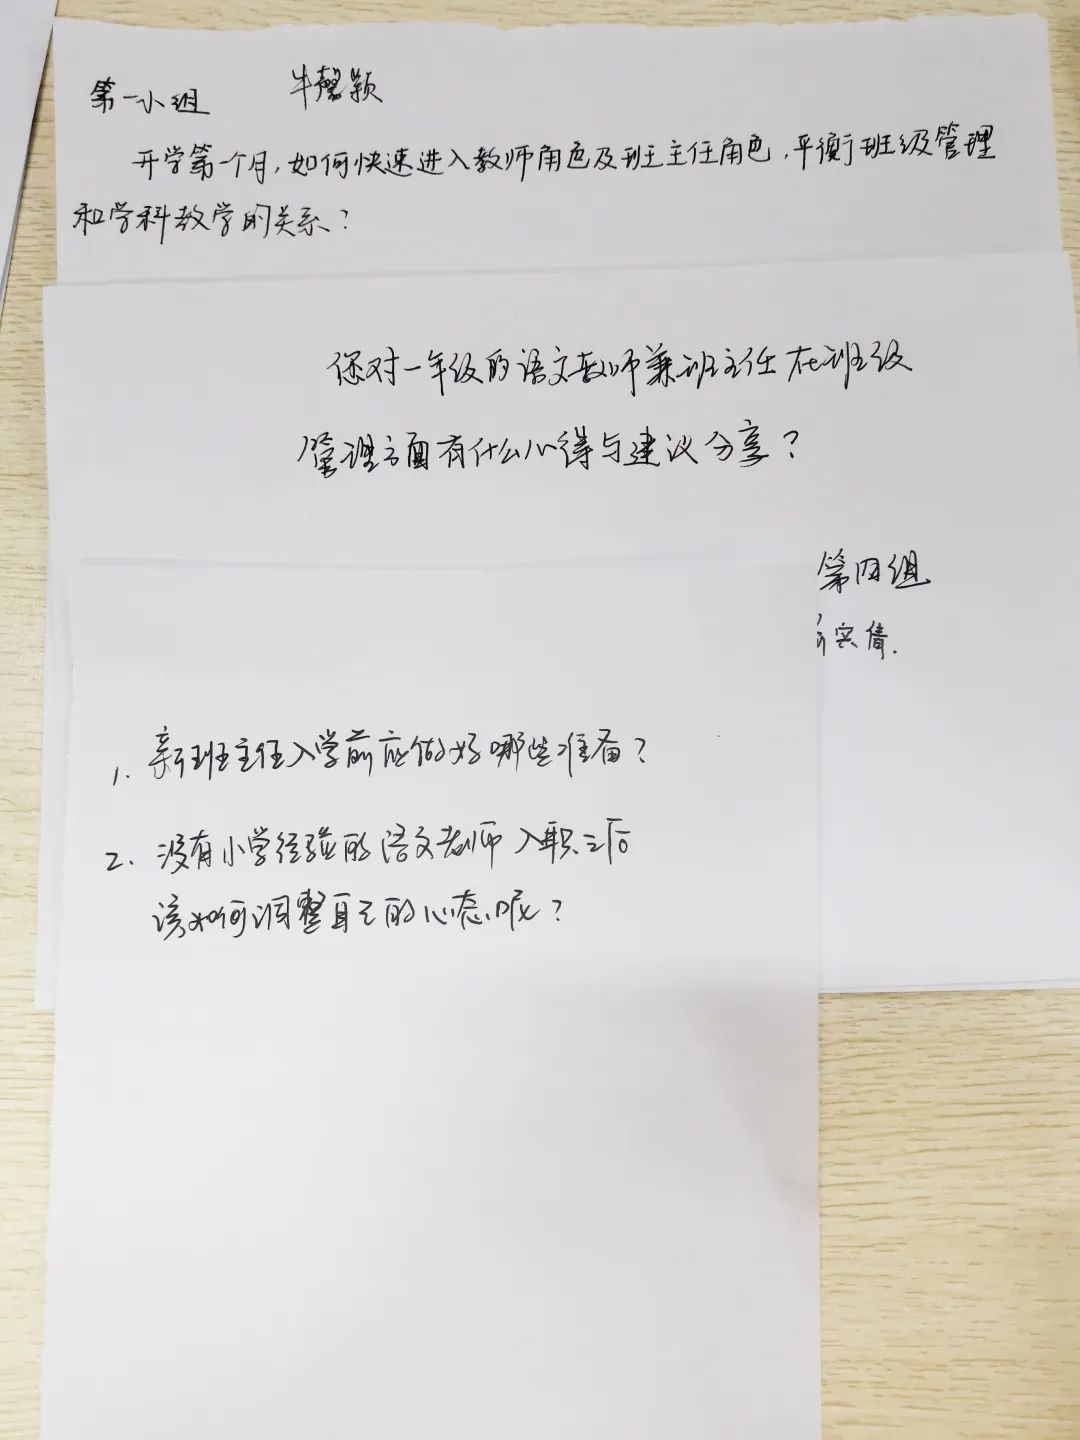 第一小组 牛馨颖
开学第一个月,如何快速进入教师角色及班主任角色,平衡班级管理
和学科教学的关系?
您对一年级的语文教师兼班主任在班级
管理方面有什么心得与建议分享?
第四组
实倩.
1. 新班主任入学前应做好哪些准备?
2. 没有小学经验的语文老师入职之后
该如何调整自己的心态呢?